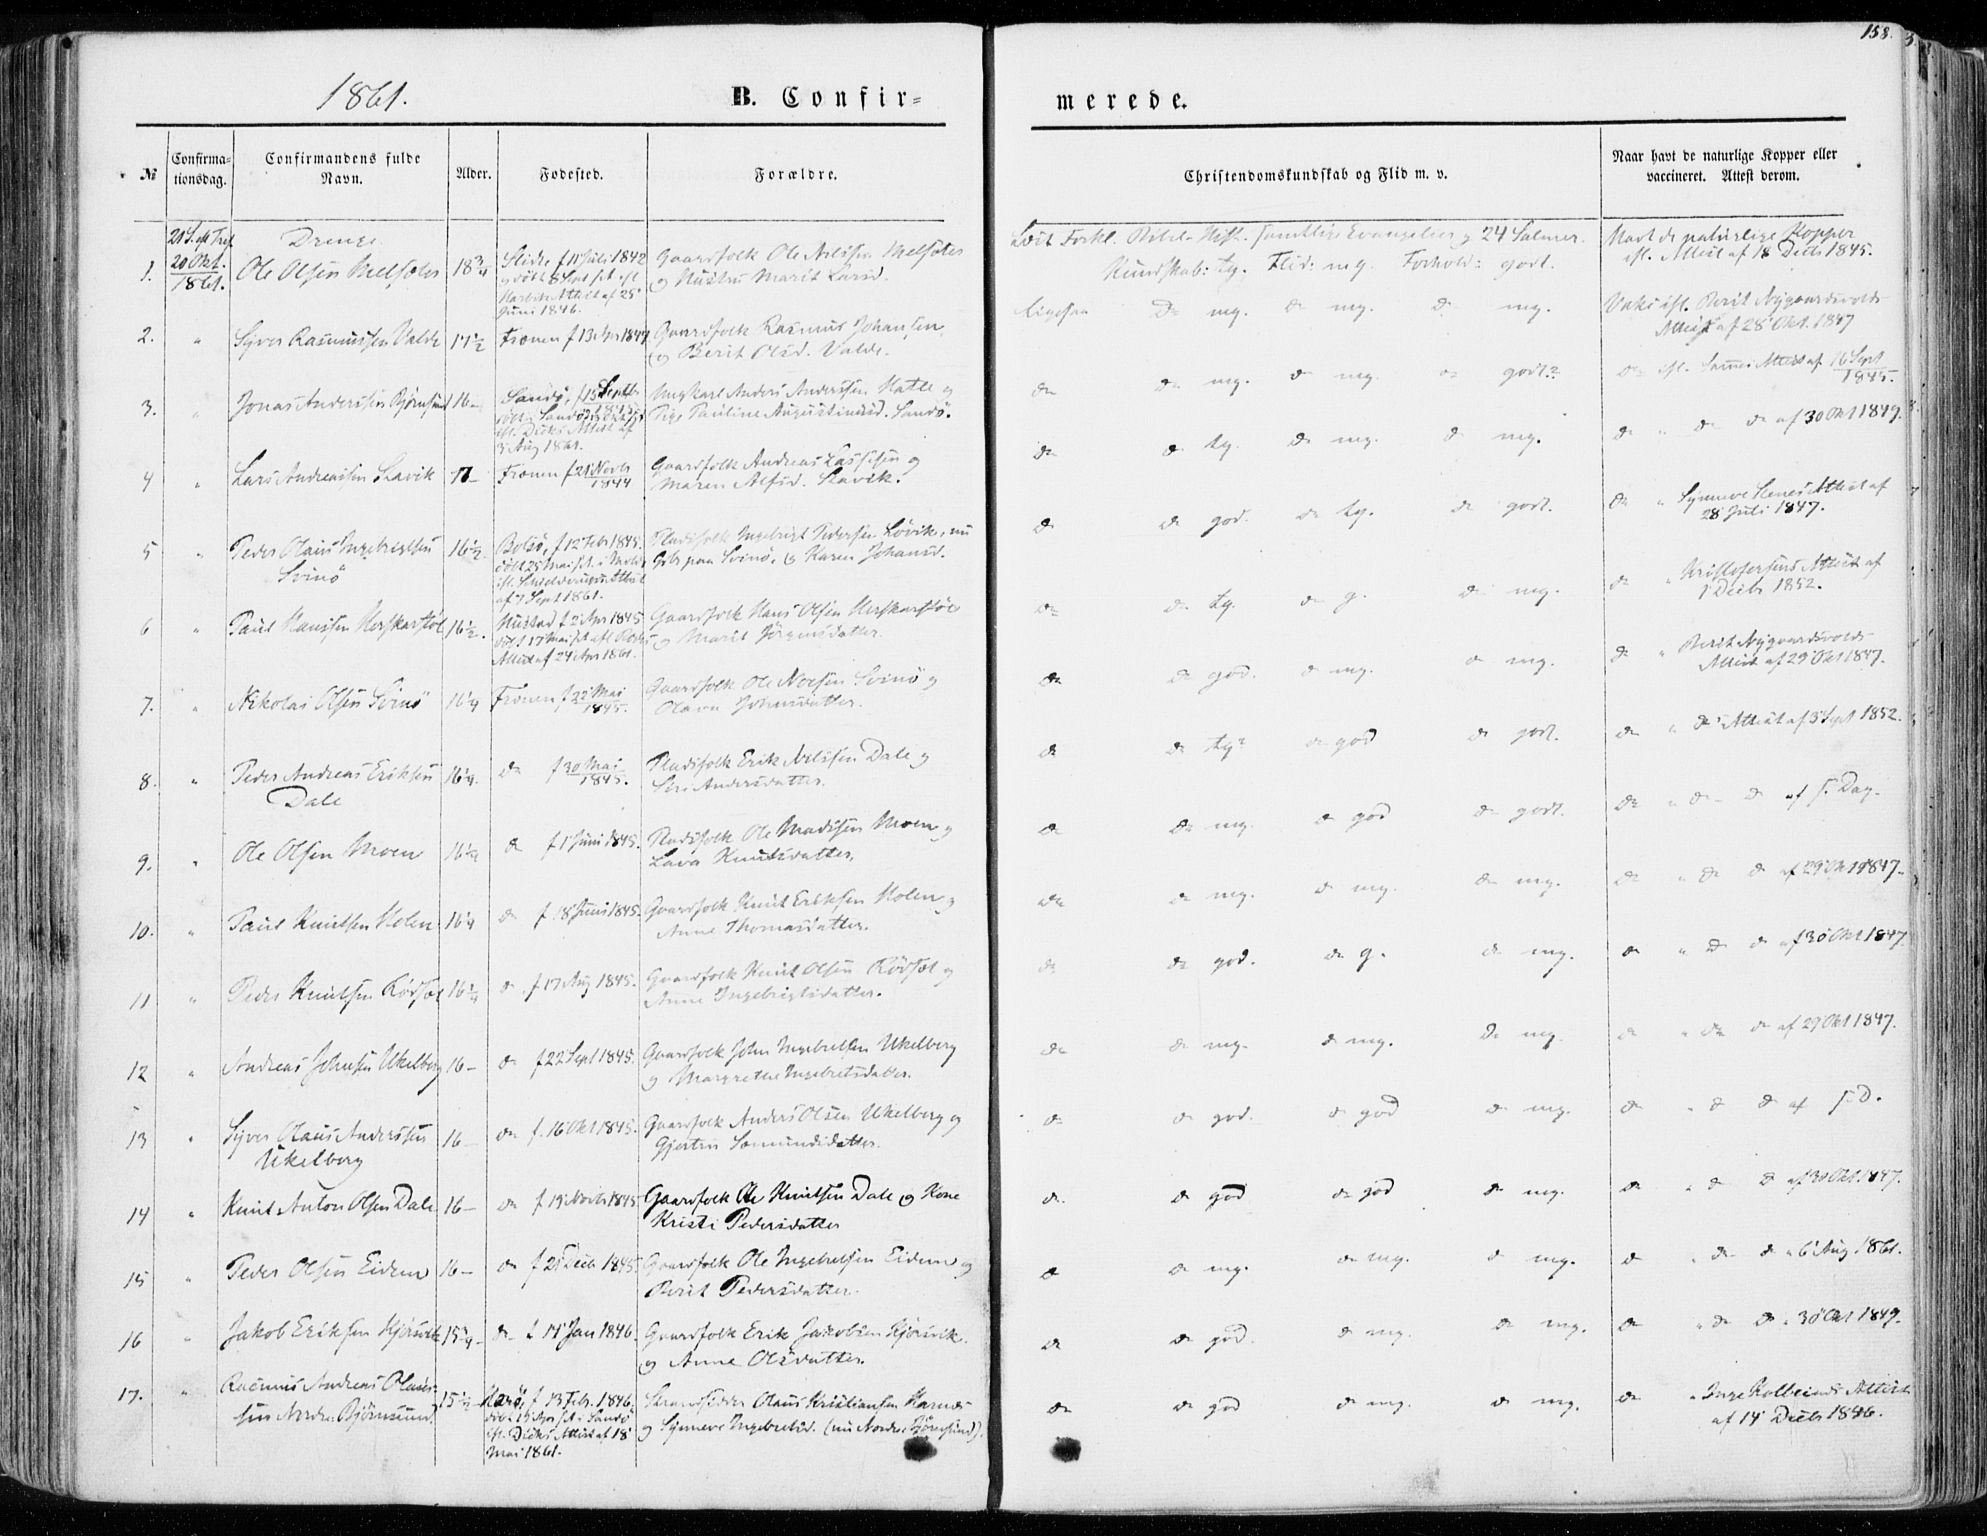 158.
1861.
B. Confir=
merede.
№
Confirma-
tionsdag.
Confirmandens fulde
Navn.
Alder.
Fodested.
Forældre.
Christendomskundskab og Flid m. v.
Naar havt de naturlige Kopper eller
vaccineret. Attest derom.
Drenge
1.
20 Okt.
1861.
Ole Olsen Melsæter
18¾
f 11 Juli 1842
Juni 1846.
Gaardfolk Ole Nilssen Melsæter
og Hustru Marit Larsd.
Læst Forkl. Bibel-Hist. samtlige Evangelier og 24 Salmer.
Kundskab: tg. Flid: mg. Forhold: godt.
Havt de naturlige Kopper
ifl. Attest af 18 Decbr 1845.
2.
"
Syver Rasmussen Valde
17½
Frænen f 13 Apr 1844
Gaardfolk Rasmus Johansen
og Berit Olsd. Valde.
ligesaa do mg. do mg. do mg.
Vaks ifl. Berit Nygaardsvolds
Attest af 28 Okt. 1847
3.
"
Jonas Anderssen Bjørnsund
16-
Sandø, f 15 Septbr
3 Aug 1861.
Ungkarl Anders Anderssen Hatle og
Pige Pauline Augustinusd. Sandø.
do do mg. do mg. do godt?
do ifl. Sammes Attest af 16 Sept
1845.
4
"
Lars Andreassen Stavik
17-
Frænen f 21 Novbr
1844
Gaardfolk Andreas Lassesen og
Maren Alfsd. Stavik.
do do tg. do mg. do mg.
do " do do af 30 Okt 1849.
5
"
Peder Olaus Ingebrigtsen
Svinø
16½
Bolsø, f 12 Febr 1845.
af 7 Sept 1861.
Pladsfolk Ingebrigt Pedersen Løvik, nu
Gbr paa Svinø, og Karen Johansd.
do do god. do tg. do godt.
do " Synneve Stenes Attest af
28 Juli 1847.
6
"
Paul Hanssen Herskarstøl
16½.
Hustad f 2 Apr 1845
Attest af 24 Apr 1861.
Gaardfolk Hans Olsen Herskarstøl
og Marit Jørgensdatter.
do do tg. do g. do mg.
do " Kristofersens Attest af
1 Decbr 1852.
7.
"
Nikolai Olsen Svinø
16¼
Frænen f 22 Mai
1845.
Gaardfolk Ole Nilsen Svinø og
Olava Johnsdatter.
do do god. do mg. do mg.
do " Berit Nygaardsvolds
Attest af 29 Okt 1847.
8.
"
Peder Andreas Eriksen
Dale
16¼.
do f 30 Mai
1845.
Pladsfolk Erik Nilssen Dale og
Siri Andersdatter.
do do tg? do god do godt.
do " do Attest af 3 Sept 1852.
9.
"
Ole Olsen Moen
16¼
do f 1 Juni 1845.
Pladsfolk Ole Madssen Moen og
Lava Knutsdatter.
do do mg. do god do godt.
do " do do af s. Dag.
10.
"
Paul Knutsen Holen
16¼
do f. 18 Juni 1845.
Gaardfolk Knut Eriksen Holen og
Anne Thomasdatter.
do do mg. do mg. do mg.
do " do do af 29 Okt 1847.
11
"
Peder Knutsen Rødsæt
16¼
do f 17 Aug 1845.
Gaardfolk Knut Olsen Rødsæt og
Anne Ingebrigtsdatter.
do do god. do g. do mg.
do " do do af 30 Okt 1847.
12
"
Andreas Johnsen Ukelberg
16-
do f 22 Sept 1845.
Gaardfolk John Ingebretsen Ukelberg
og Margrethe Ingebretsdatter.
do do mg. do mg. do mg.
do " do do af 29 Okt 1847.
13
"
Syver Olaus Anderssen
Ukelberg
16-
do f. 16 Okt 1845.
Gaardfolk Anders Olsen Ukelberg og
Gjertru Sæmundsdatter.
do do god. do god do mg.
do " do do af s. D.
14
"
Knut Anton Olsen Dale
16-
do f 19 Novbr 1845
Gaardfolk Ole Knutsen Dale og Kone
Kristi Pedersdatter
do do god do god do mg.
do " do do af 30 Okt. 1847.
15
"
Peder Olsen Eidem
16-
do f 25 Decb 1845.
Gaardfolk Ole Ingebretsen Eidem og
Berit Pedersdatter.
do do mg. do mg. do mg.
do " do do " 6 Aug 1861.
16
"
Jakob Eriksen Hjørsvik
15¾-
do f 14 Jan 1846.
Gaardfolk Erik Jakobsen Hjørsvik
og Anne Olsdatter.
do do god. do mg. do mg.
do " do do " 30 Okt 1849.
17.
"
Rasmus Andreas Olaus-
sen Nordre Bjørnsund.
15½
Harø, f 13 Febr. 1846,
døbt 19 Apr s.A. i Sandø
ifl. Dicks Attest af 18
Mai 1861.
Strandsidder Olaus Kristiansen Harnes
og Synneve Ingebretsd. (nu Nordre Bjørnsund).
do do god do mg. do mg.
do " Inge Kolbeinds Attest
af 14 Decbr 1846.